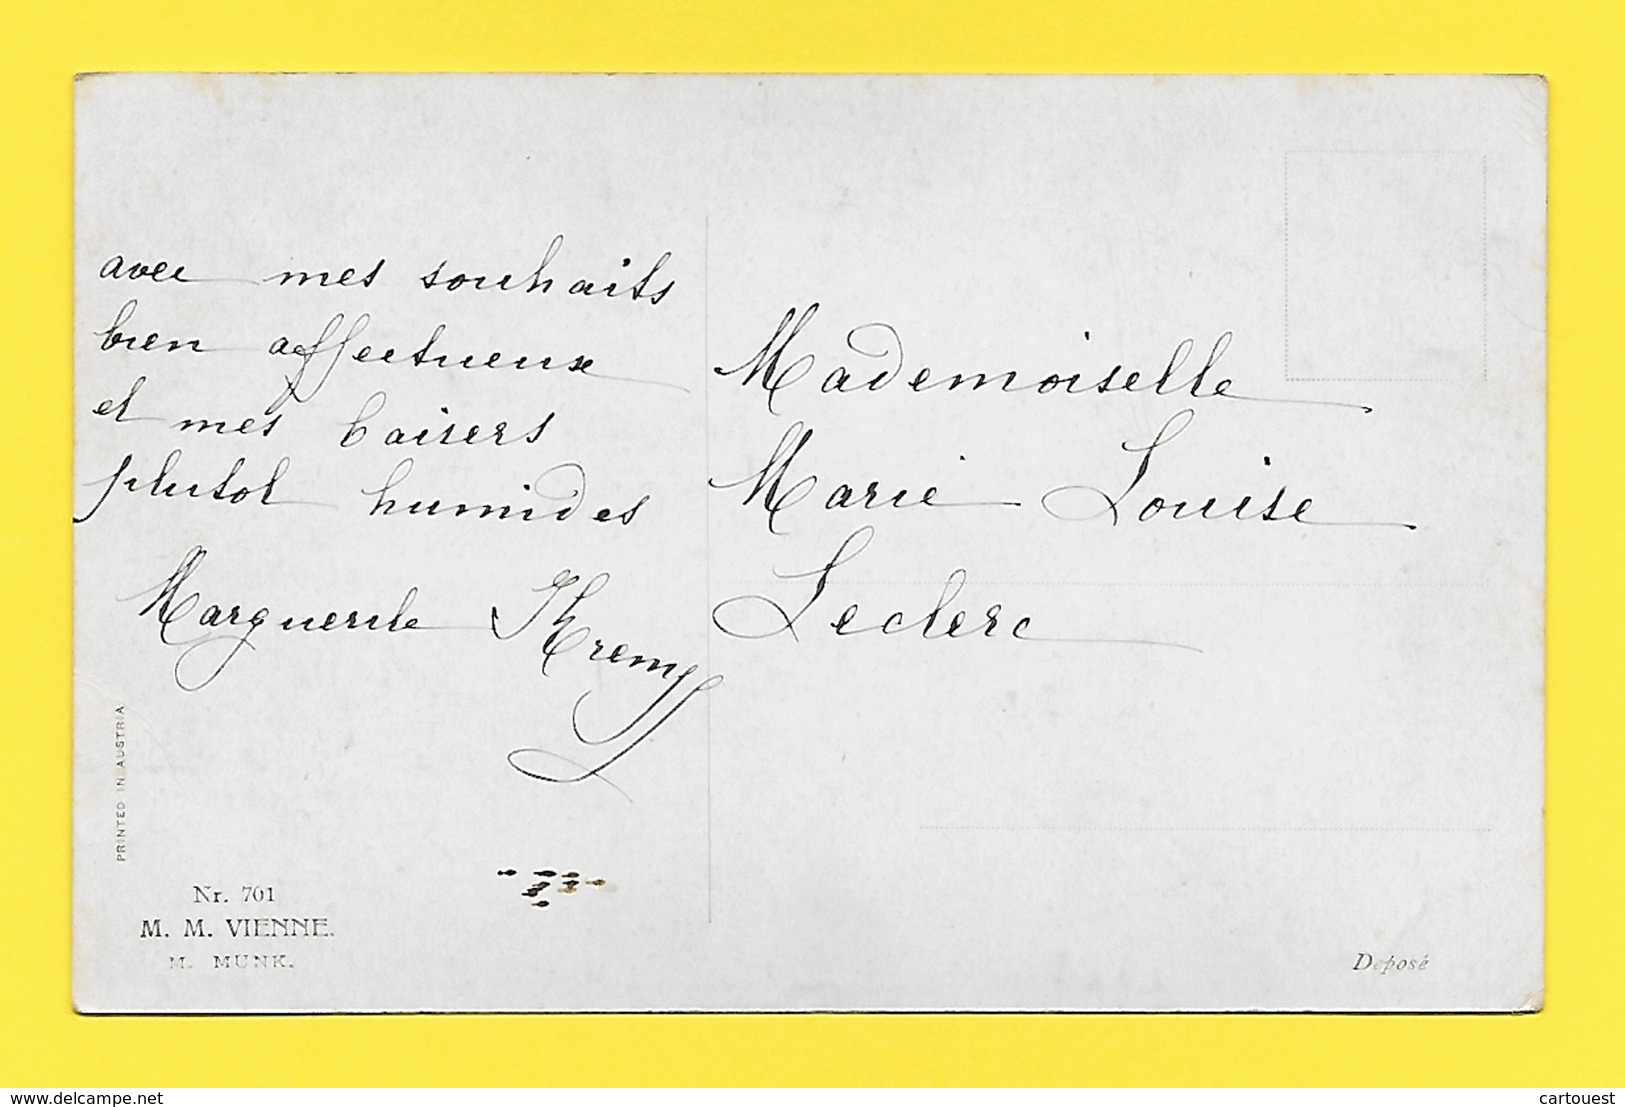 avec mes souhaits
bien affectueux
et mes baisers
plutot humides
Marguerite Kremp
Mademoiselle
Marie Louise
Leclerc
PRINTED IN AUSTRIA
Nr. 701
M. M. VIENNE.
M. MUNK.
Deposé
delcampe.net
cartouest